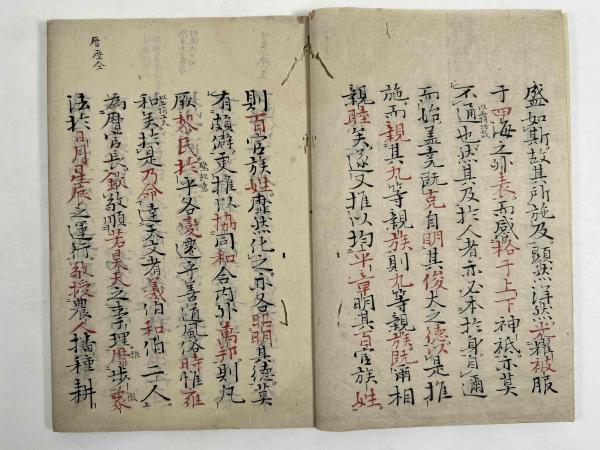 盛如斯故其所施及顯然淂然光被被服
于四海之外表而感格于上下神祗亦莫
不通也然其及於人者亦必本於身自邇
而始盖堯既克自明其俊大之德以是推
施而親其九等親族則九等親族既兩相
親睦矣遂又推以均平章明其百官族姓
則百官族姓靡然化之亦各昭明其德莫
有頗僻更推以協同和合內外萬邦則凡
厥黎民於乎各變遷乎善道風俗時惟雍
和美於是乃命達天文者羲伯和伯二人
為曆官長欽敬順若昊天之事理曆步象
法於日月星辰之運行敬授農人播種耕
曆歴仝